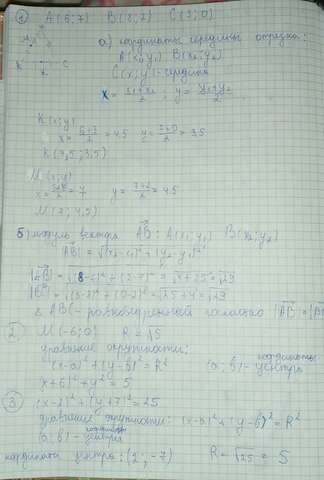 ① A(6;7) B(8;2) C(3;0)
а) координаты середины отрезка:
A(x₁;y₁) B(x₂;y₂)
C(x;y) - середина
x = (x₁+x₂)/2 ; y = (y₁+y₂)/2
K(x;y)
x = (6+3)/2 = 4,5 y = (7+0)/2 = 3,5
K(4,5;3,5)
M(x;y)
x = (6+8)/2 = 7 y = (7+2)/2 = 4,5
M(7;4,5)
б) модуль вектора AB: A(x₁;y₁) B(x₂;y₂)
|AB| = √(x₂-x₁)²+(y₂-y₁)²
|AB| = √(8-6)²+(2-7)² = √4+25 = √29
|BC| = √(3-8)²+(0-2)² = √25+4 = √29
AB - равнобедренный |AB| = |BC|
② M(-6;0) R=√5
уравнение окружности:
(x-a)²+(y-б)²=R² (a;б) - координаты центра
(x+6)²+y²=5
③ (x-2)²+(y+7)²=25
уравнение окружности: (x-a)²+(y-б)²=R²
(a;б) - координаты центра
координаты центра: (2;-7) R=√25=5